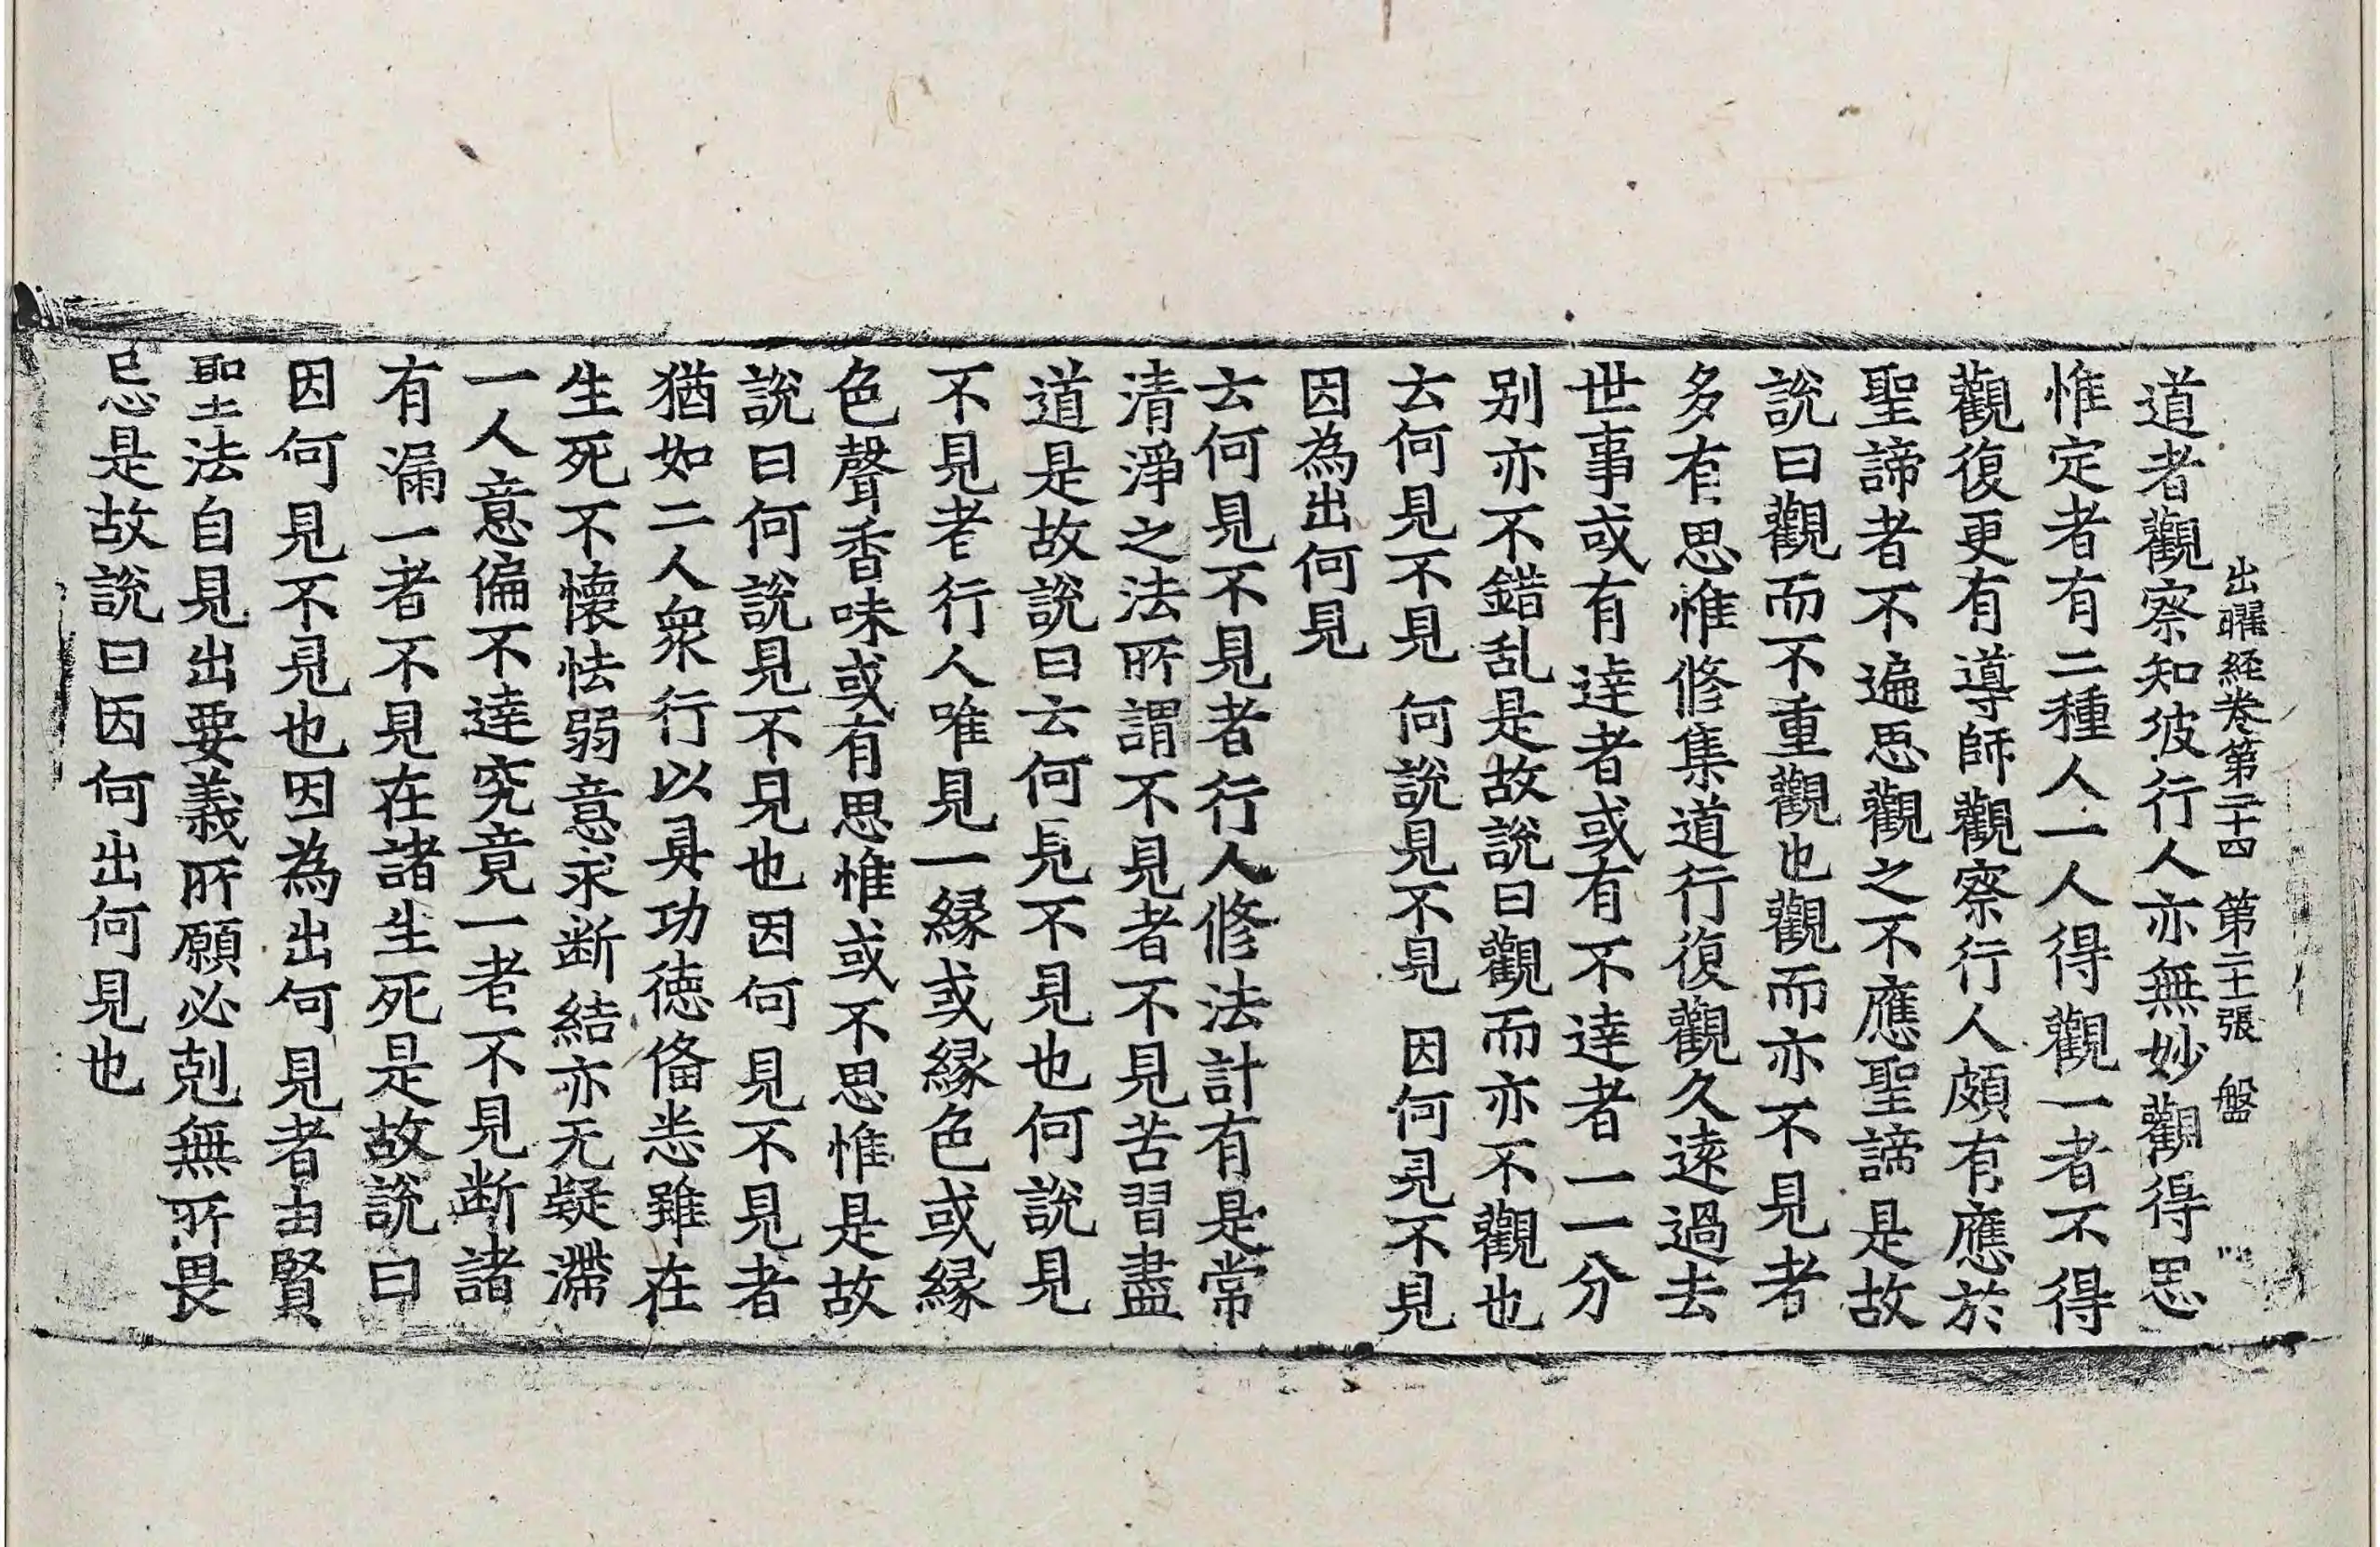 出曜経卷第二十四 第二十張 盤
道者觀察知彼行人亦無妙觀得思
惟定者有二種人一人得觀一者不得
觀復更有導師觀察行人頗有應於
聖諦者不遍思觀之不應聖諦是故
說曰觀而不重觀也觀而亦不見者
多有思惟修集道行復觀久遠過去
世事或有達者或有不達者一一分
别亦不錯乱是故說曰觀而亦不觀也
去何見不見 何說見不見 因何見不見
因為出何見
去何見不見者行人修法計有是常
清淨之法所謂不見者不見苦習盡
道是故說曰去何見不見也何說見
不見者行人唯見一縁或縁色或縁
色聲香味或有思惟或不思惟是故
說曰何說見不見也因何見不見者
猶如二人衆行以具功徳俻悉雖在
生死不懷怯弱意求断結亦无疑滯
一人意偏不達究竟一者不見断諸
有漏一者不見在諸生死是故說曰
因何見不見也因為出何見者由賢
聖法自見出要義所願必剋無所畏
忌是故說曰因何出何見也